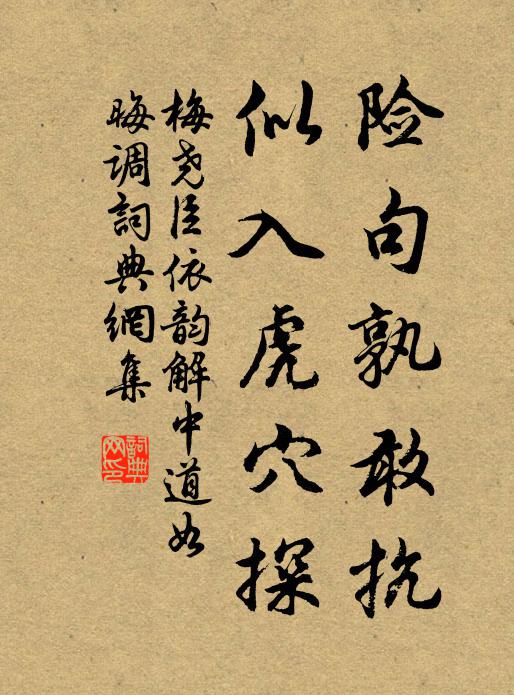 险句孰敢抗
似入虎穴探
梅尧臣依韵解中道如
晦调詞典網集
詞典
网印